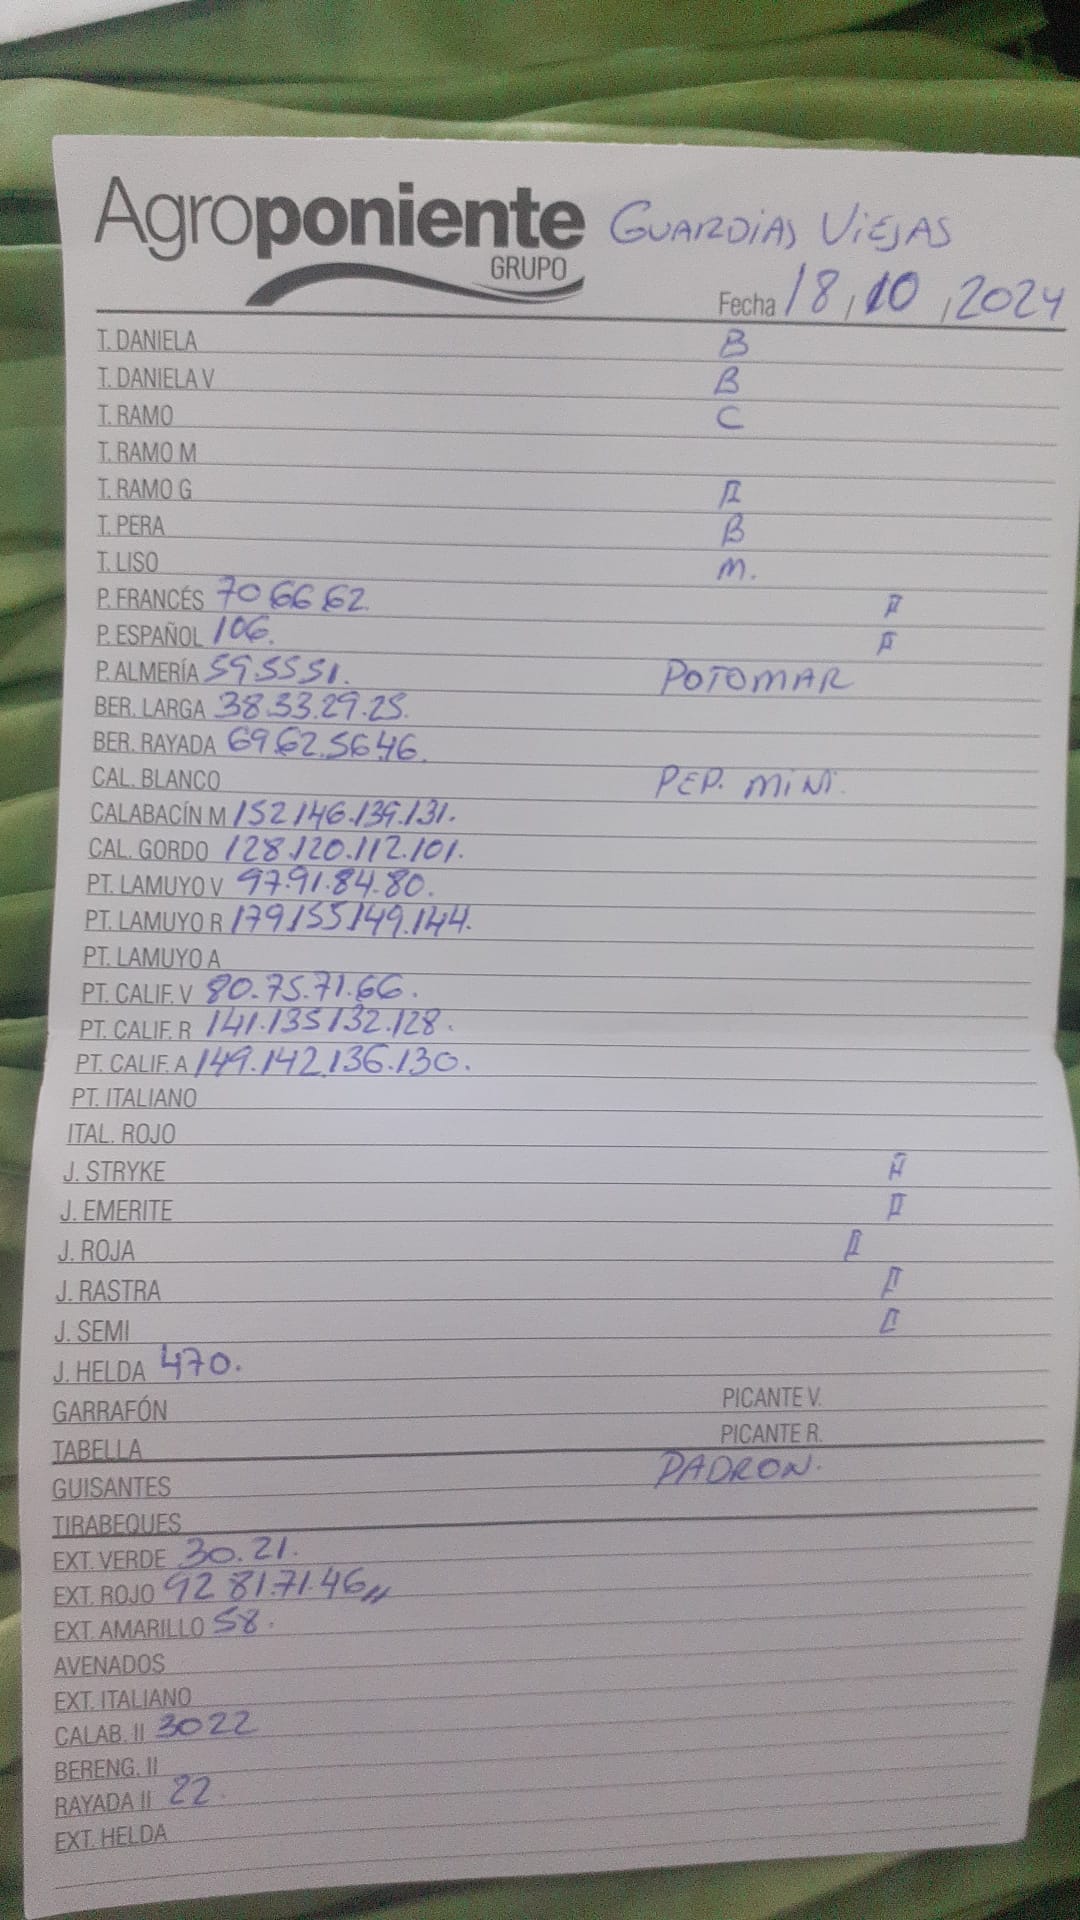 Agroponiente GUARDIAS VIEJAS
GRUPO
Fecha 18, 10, 2024
T. DANIELA B
T. DANIELA V B
T. RAMO C
T. RAMO M
T. RAMO G
T. PERA B
T. LISO M.
P. FRANCÉS 70 66 62.
P. ESPAÑOL 106.
P. ALMERÍA 59.55 51. POTOMAR
BER. LARGA 38.33.29.25.
BER. RAYADA 69.62.56.46.
CAL. BLANCO PEP. MINI.
CALABACÍN M 152 146.139.131.
CAL. GORDO 128.120.112.101.
PT. LAMUYO V 97.91.84.80.
PT. LAMUYO R 179 155 149.144.
PT. LAMUYO A
PT. CALIF. V 80.75.71.66.
PT. CALIF. R 141.135 132.128.
PT. CALIF. A 149.142.136.130.
PT. ITALIANO
ITAL. ROJO
J. STRYKE
J. EMERITE
J. ROJA
J. RASTRA
J. SEMI
J. HELDA 470.
GARRAFÓN PICANTE V.
TABELLA PICANTE R.
GUISANTES PADRON.
TIRABEQUES
EXT. VERDE 30.21.
EXT. ROJO 92 81.71.46,,
EXT. AMARILLO 58.
AVENADOS
EXT. ITALIANO
CALAB. II 30 22
BERENG. II
RAYADA II 22.
EXT. HELDA